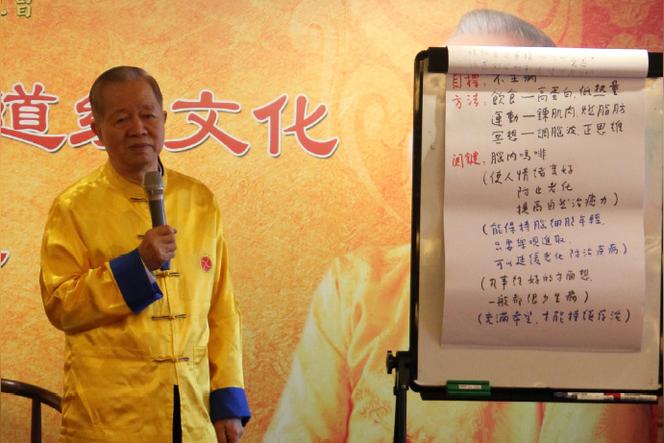 道統文化
目標：不生病
方法：飲食—高蛋白,低熱量
運動—鍊肌肉,燃脂肪
冥想—調腦波,正思維
関鍵：腦内嗎啡
(使人情緒美好
防止老化
提高自然治療力)
(能保持腦細胞年輕,
只要樂觀進取,
可以延緩老化,防治疾病)
(凡事往好的方面想,
一般都很少生病)
(充滿希望,才能持續存活)